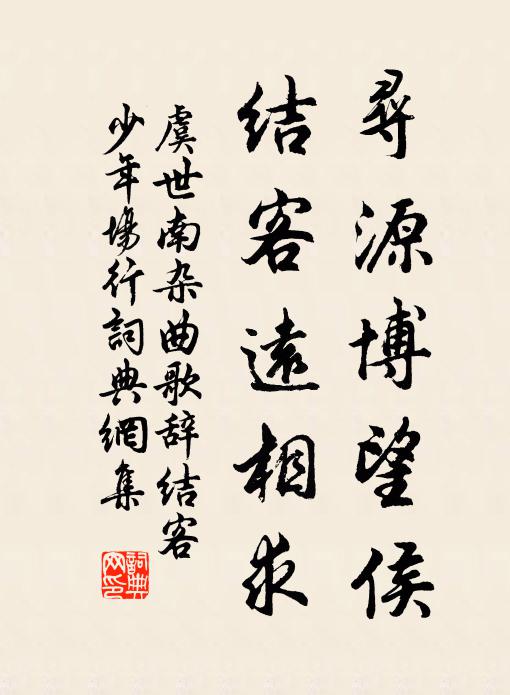 尋源博望侯
结客遠相求
虞世南杂曲歌辞结客
少年場行詞典網集
詞典网印